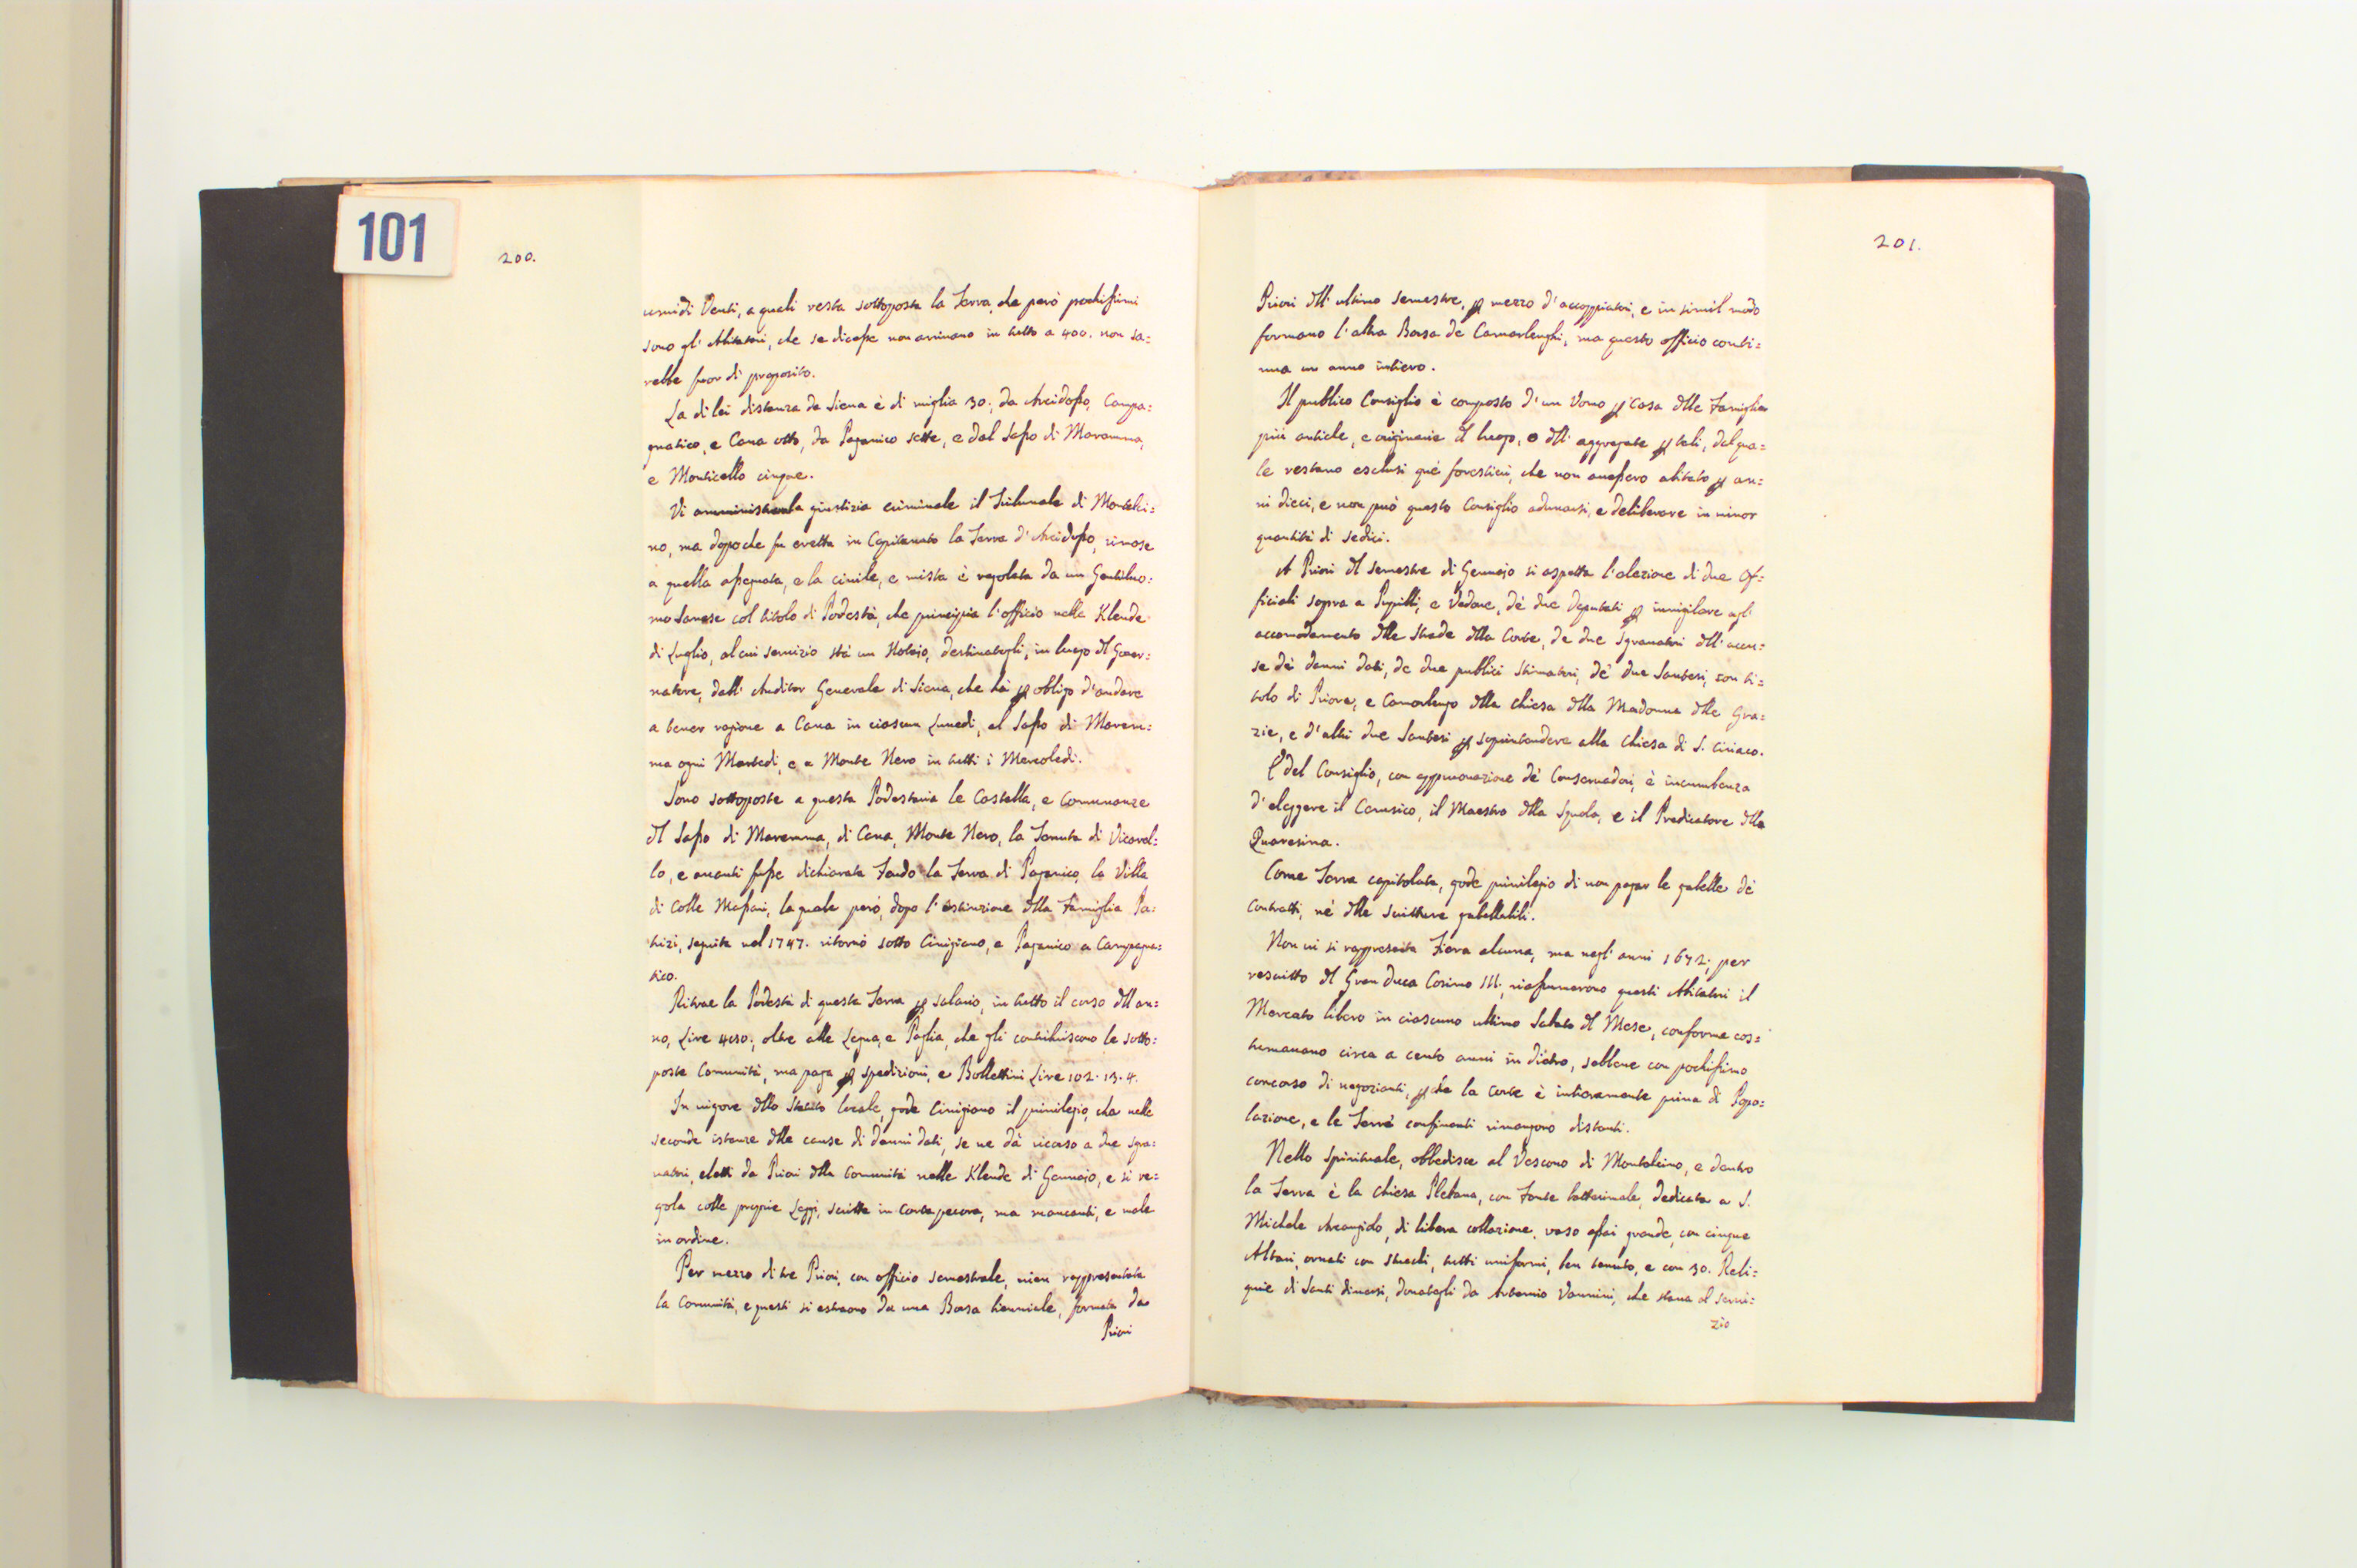 101
200.
umidi Venti, a quali resta sottoposta la Terra, che però pochissimi
sono gl' Abitatori, che se dicesse non arrivano in tutto a 400. non sa=
rebbe fuor di proposito.
La di lei distanza da Siena è di miglia 30., da Arcidosso, Campa=
gnatico, e Cana otto, da Paganico sette, e dal Sasso di Maremma,
e Monticello cinque.
Vi amministrava la giustizia criminale il Tribunale di Montalci=
no, ma dopo che fu eretta in Capitanato la Terra d' Arcidosso, rimase
a quella assegnata, e la civile, e mista è regolata da un Gentiluo:
mo Sanese col titolo di Podestà, che principia l'officio nelle Klende
di Luglio, al cui servizio stà un Notaio, destinatogli, in luogo dl Gover=
natore, dall' Auditor Generale di Siena, che hà ꝑ obligo d'andare
a tener ragione a Cana in ciascun Lunedi, al Sasso di Marem=
ma ogni Martedi, e a Monte Nero in tutti i Mercoledi.
Sono sottoposte a questa Podestaria le Castella, e Comunanze
dl Sasso di Maremma, di Cana, Monte Nero, la Tenuta di Vicarel=
lo, e avanti fusse dichiarata Feudo la Terra di Paganico, la Villa
di Colle Massari, la quale però, dopo l'estinzione dlla Famiglia Pa=
trizi, seguita nel 1747. ritornò sotto Cinigiano, e Paganico a Campagna=
tico.
Ritrae la Podestà di questa Terra ꝑ salario, in tutto il corso dll an=
no, Lire 4050., oltre alle Legna, e Paglia, che gli contribuiscono le sotto=
poste Comunità, ma paga ꝑ spedizioni, e Bollettini Lire 102. 13. 4.
In vigore dllo Statuto locale, gode Cinigiano il privilegio, che nelle
seconde istanze dlle cause di danni dati, se ne dà ricorso a due sgra=
vatori, eletti da Priori dlla Comunità nelle Klende di Gennaio, e si re=
gola colle proprie Leggi, scritte in carta pecora, ma mancanti, e male
in ordine.
Per mezzo di tre Priori, con officio semestrale, vien rappresentata
la Comunità, e questi si estraono da una Borsa trienniale, formata da
Priori
201.
Priori dll' ultimo semestre, ꝑ mezzo d'accoppiatori, e in simil modo
formano l'altra Borsa de Camarlenghi, ma questo officio conti=
nua un anno intiero.
Il publico Consiglio è composto d'un Uomo ꝑ Casa dlle Famiglie
più antiche, e originarie dl luogo, o dll' aggregate ꝑ tali, dal qua=
le restano esclusi què forestieri, che non avessero abitato ꝑ an=
ni dieci, e non può questo Consiglio adunarsi, e deliberare in minor
quantità di sedici.
A Priori dl semestre di Gennajo si aspetta l'elezione di due Of=
ficiali sopra a Pupilli, e Vedove, dè due Deputati ꝑ invigilare agl'
accomodamento dlle strade dlla Corte, de due sgravatori dll' accu=
se dè danni dati, de due publici stimatori, dè due Santesi, con ti=
tolo di Priore, e Camarlengo dlla chiesa dlla Madonna dlle Gra=
zie, e d'altri due Santesi ꝑ soprintendere alla chiesa di S. Ciriaco.
E' del Consiglio, con approvazione dè Conservadori, è incumbenza
d'eleggere il Cerusico, il Maestro dlla Squola, e il Predicatore dlla
Quaresima.
Come Terra capitolata, gode privilegio di non pagar le gabelle dè
contratti, nè dlle scritture gabellabili.
Non vi si rappresenta Fiera alcuna, ma negl' anni 1672., per
rescritto dl Gran Duca Cosimo III., riassumerono questi Abitatori il
Mercato libero in ciascuno ultimo Sabato dl Mese, conforme cos=
tumavano circa a cento anni in dietro, sebbene con pochissimo
concorso di negozianti, ꝑche la Corte è intieramente priva di Popo=
lazione, e le Terre confinanti rimangono distanti.
Nello spirituale, obbedisce al Vescovo di Montalcino, e dentro
la Terra è la chiesa Plebana, con Fonte battesimale, dedicata a S.
Michele Arcangiolo, di libera collazione, vaso assai grande, con cinque
Altari, ornati con stucchi, tutti uniformi, ben tenuto, e con 30. Reli=
quie di Santi diversi, donategli da Artemio Vannini, che stava al servi=
zio